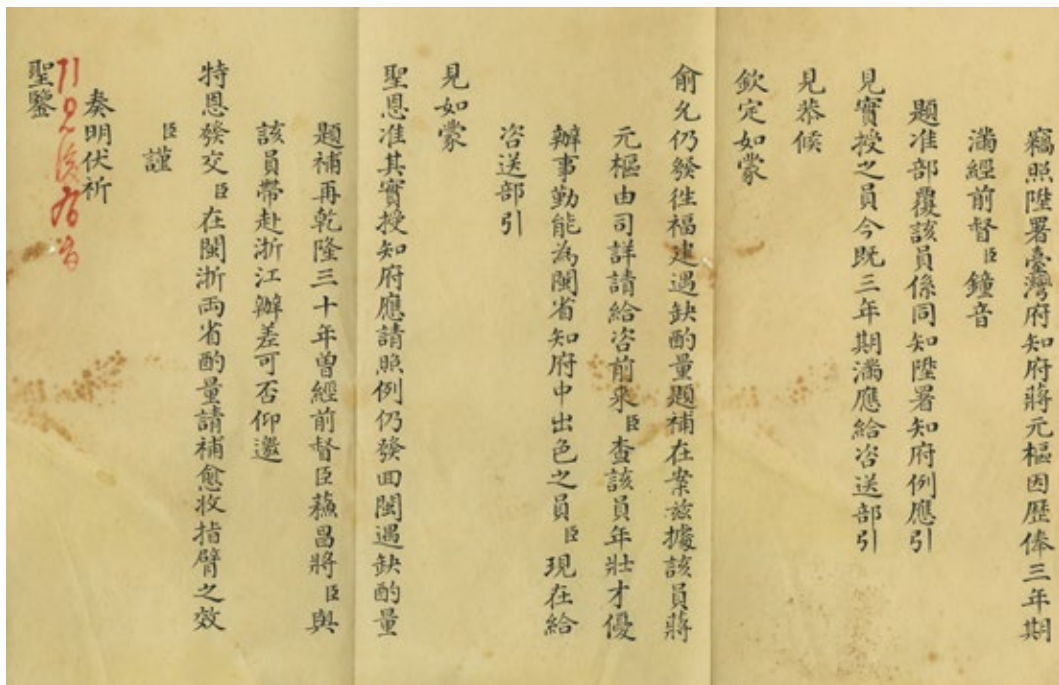 竊照陞署臺灣府知府蔣元樞因歷俸三年期
滿經前督臣鐘音
題准部覆該員係同知陞署知府例應引
見實授之員今既三年期滿應給咨送部引
見恭候
欽定如蒙
俞允仍發徃福建遇缺酌量題補在案茲據該員蔣
元樞由司詳請給咨前來臣查該員年壯才優
辦事勤能為閩省知府中出色之員臣現在給
咨送部引
見如蒙
聖恩准其實授知府應請照例仍發回閩遇缺酌量
題補再乾隆三十年曾經前督臣蘓昌將臣與
該員帶赴浙江辦差可否仰邀
特恩發交臣在閩浙兩省酌量請補愈收指臂之效
臣謹
奏明伏祈
聖鑒